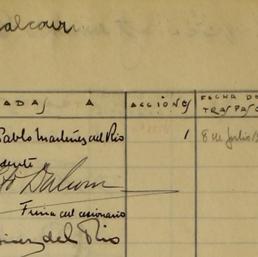 alcour
ADAS A ACCIONES FECHA DE
TRASPASO
Pablo Martínez del Río 1 8 de Julio
idente
Firma del cesionario
inez del Río